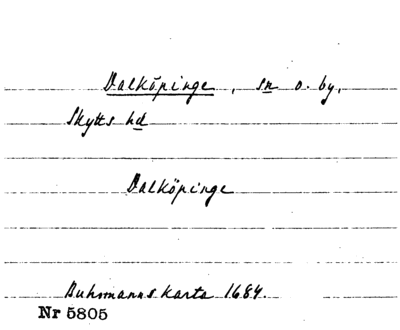 Dalköpinge, sn o. by,
Skytts hd
Dalköpinge
Buhrmanns karta 1684.
Nr 5805